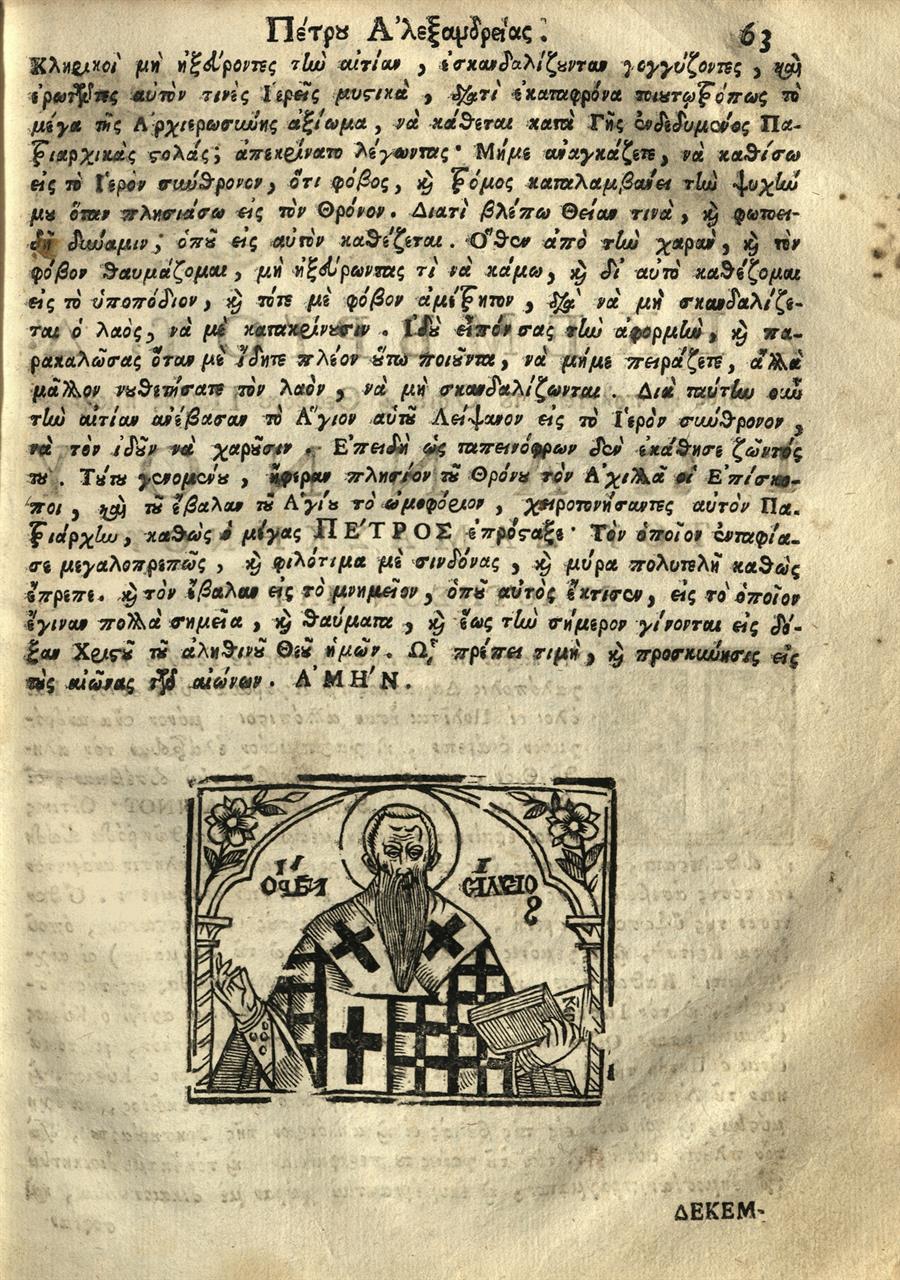 Πέτρου Ἀλεξανδρείας. 63
Κληρικοὶ μὴ ἠξεύροντες τὴν αἰτίαν, ἐσκανδαλίζουνταν γογγύζοντες, καὶ
ἐρωτῶντες αὐτὸν τινὲς Ἱερεῖς μυστικὰ, διατὶ ἐκαταφρόνα τοιουτοτρόπως τὸ
μέγα τῆς Ἀρχιερωσύνης ἀξίωμα, νὰ κάθεται κατὰ Γῆς ἐνδεδυμένος Πα-
τριαρχικὰς στολάς; ἀπεκρίνατο λέγωντας· Μήμε ἀναγκάζετε, νὰ καθίσω
εἰς τὸ Ἱερὸν σύνθρονον, ὅτι φόβος, καὶ τρόμος καταλαμβάνει τὴν ψυχήν
μου ὅταν πλησιάσω εἰς τὸν Θρόνον. Διατὶ βλέπω Θείαν τινὰ, καὶ φωτοει-
δῆ δύναμιν, ὁποῦ εἰς αὐτὸν καθέζεται. Ὅθεν ἀπὸ τὴν χαρὰν, καὶ τὸν
φόβον θαυμάζομαι, μὴ ἠξεύρωντας τὶ νὰ κάμω, καὶ δι' αὐτὸ καθέζομαι
εἰς τὸ ὑποπόδιον, καὶ τότε μὲ φόβον ἀμέτρητον, διὰ νὰ μὴ σκανδαλίζε-
ται ὁ λαὸς, νὰ μὲ κατακρίνουσιν. Ἰδοὺ εἶπόν σας τὴν ἀφορμὴν, καὶ πα-
ρακαλῶσας ὅταν μὲ ἴδητε πλέον οὕτω ποιοῦντα, νὰ μήμε πειράζετε, ἀλλὰ
μᾶλλον νουθετήσατε τὸν λαὸν, νὰ μὴ σκανδαλίζωνται. Διὰ ταύτην οὖν
τὴν αἰτίαν ἀνέβασαν τὸ Ἅγιον αὐτοῦ Λείψανον εἰς τὸ Ἱερὸν σύνθρονον,
νὰ τὸν ἰδοῦν νὰ χαροῦσιν. Ἐπειδὴ ὡς ταπεινόφρων δὲν ἐκάθησε ζῶντός
του. Τούτου γενομένου, ἤφεραν πλησίον τοῦ Θρόνου τὸν Ἀχιλλᾶ οἱ Ἐπίσκο-
ποι, καὶ τοῦ ἔβαλαν τοῦ Ἁγίου τὸ ὠμοφόριον, χειροτονήσαντες αὐτὸν Πα-
τριάρχην, καθὼς ὁ μέγας ΠΕΤΡΟΣ ἐπρόσταξε· Τὸν ὁποῖον ἐνταφία-
σε μεγαλοπρεπῶς, καὶ φιλότιμα μὲ σινδόνας, καὶ μύρα πολυτελῆ καθὼς
ἔπρεπε. καὶ τὸν ἔβαλαν εἰς τὸ μνημεῖον, ὁποῦ αὐτὸς ἔκτισεν, εἰς τὸ ὁποῖον
ἔγιναν πολλὰ σημεῖα, καὶ θαύματα, καὶ ἕως τὴν σήμερον γίνονται εἰς δό-
ξαν Χριστοῦ τοῦ ἀληθινοῦ Θεοῦ ἡμῶν. Ὧ πρέπει τιμὴ, καὶ προσκύνησις εἰς
τοὺς αἰῶνας τῶν αἰώνων. ἈΜΗΝ.
ΔΕΚΕΜ-